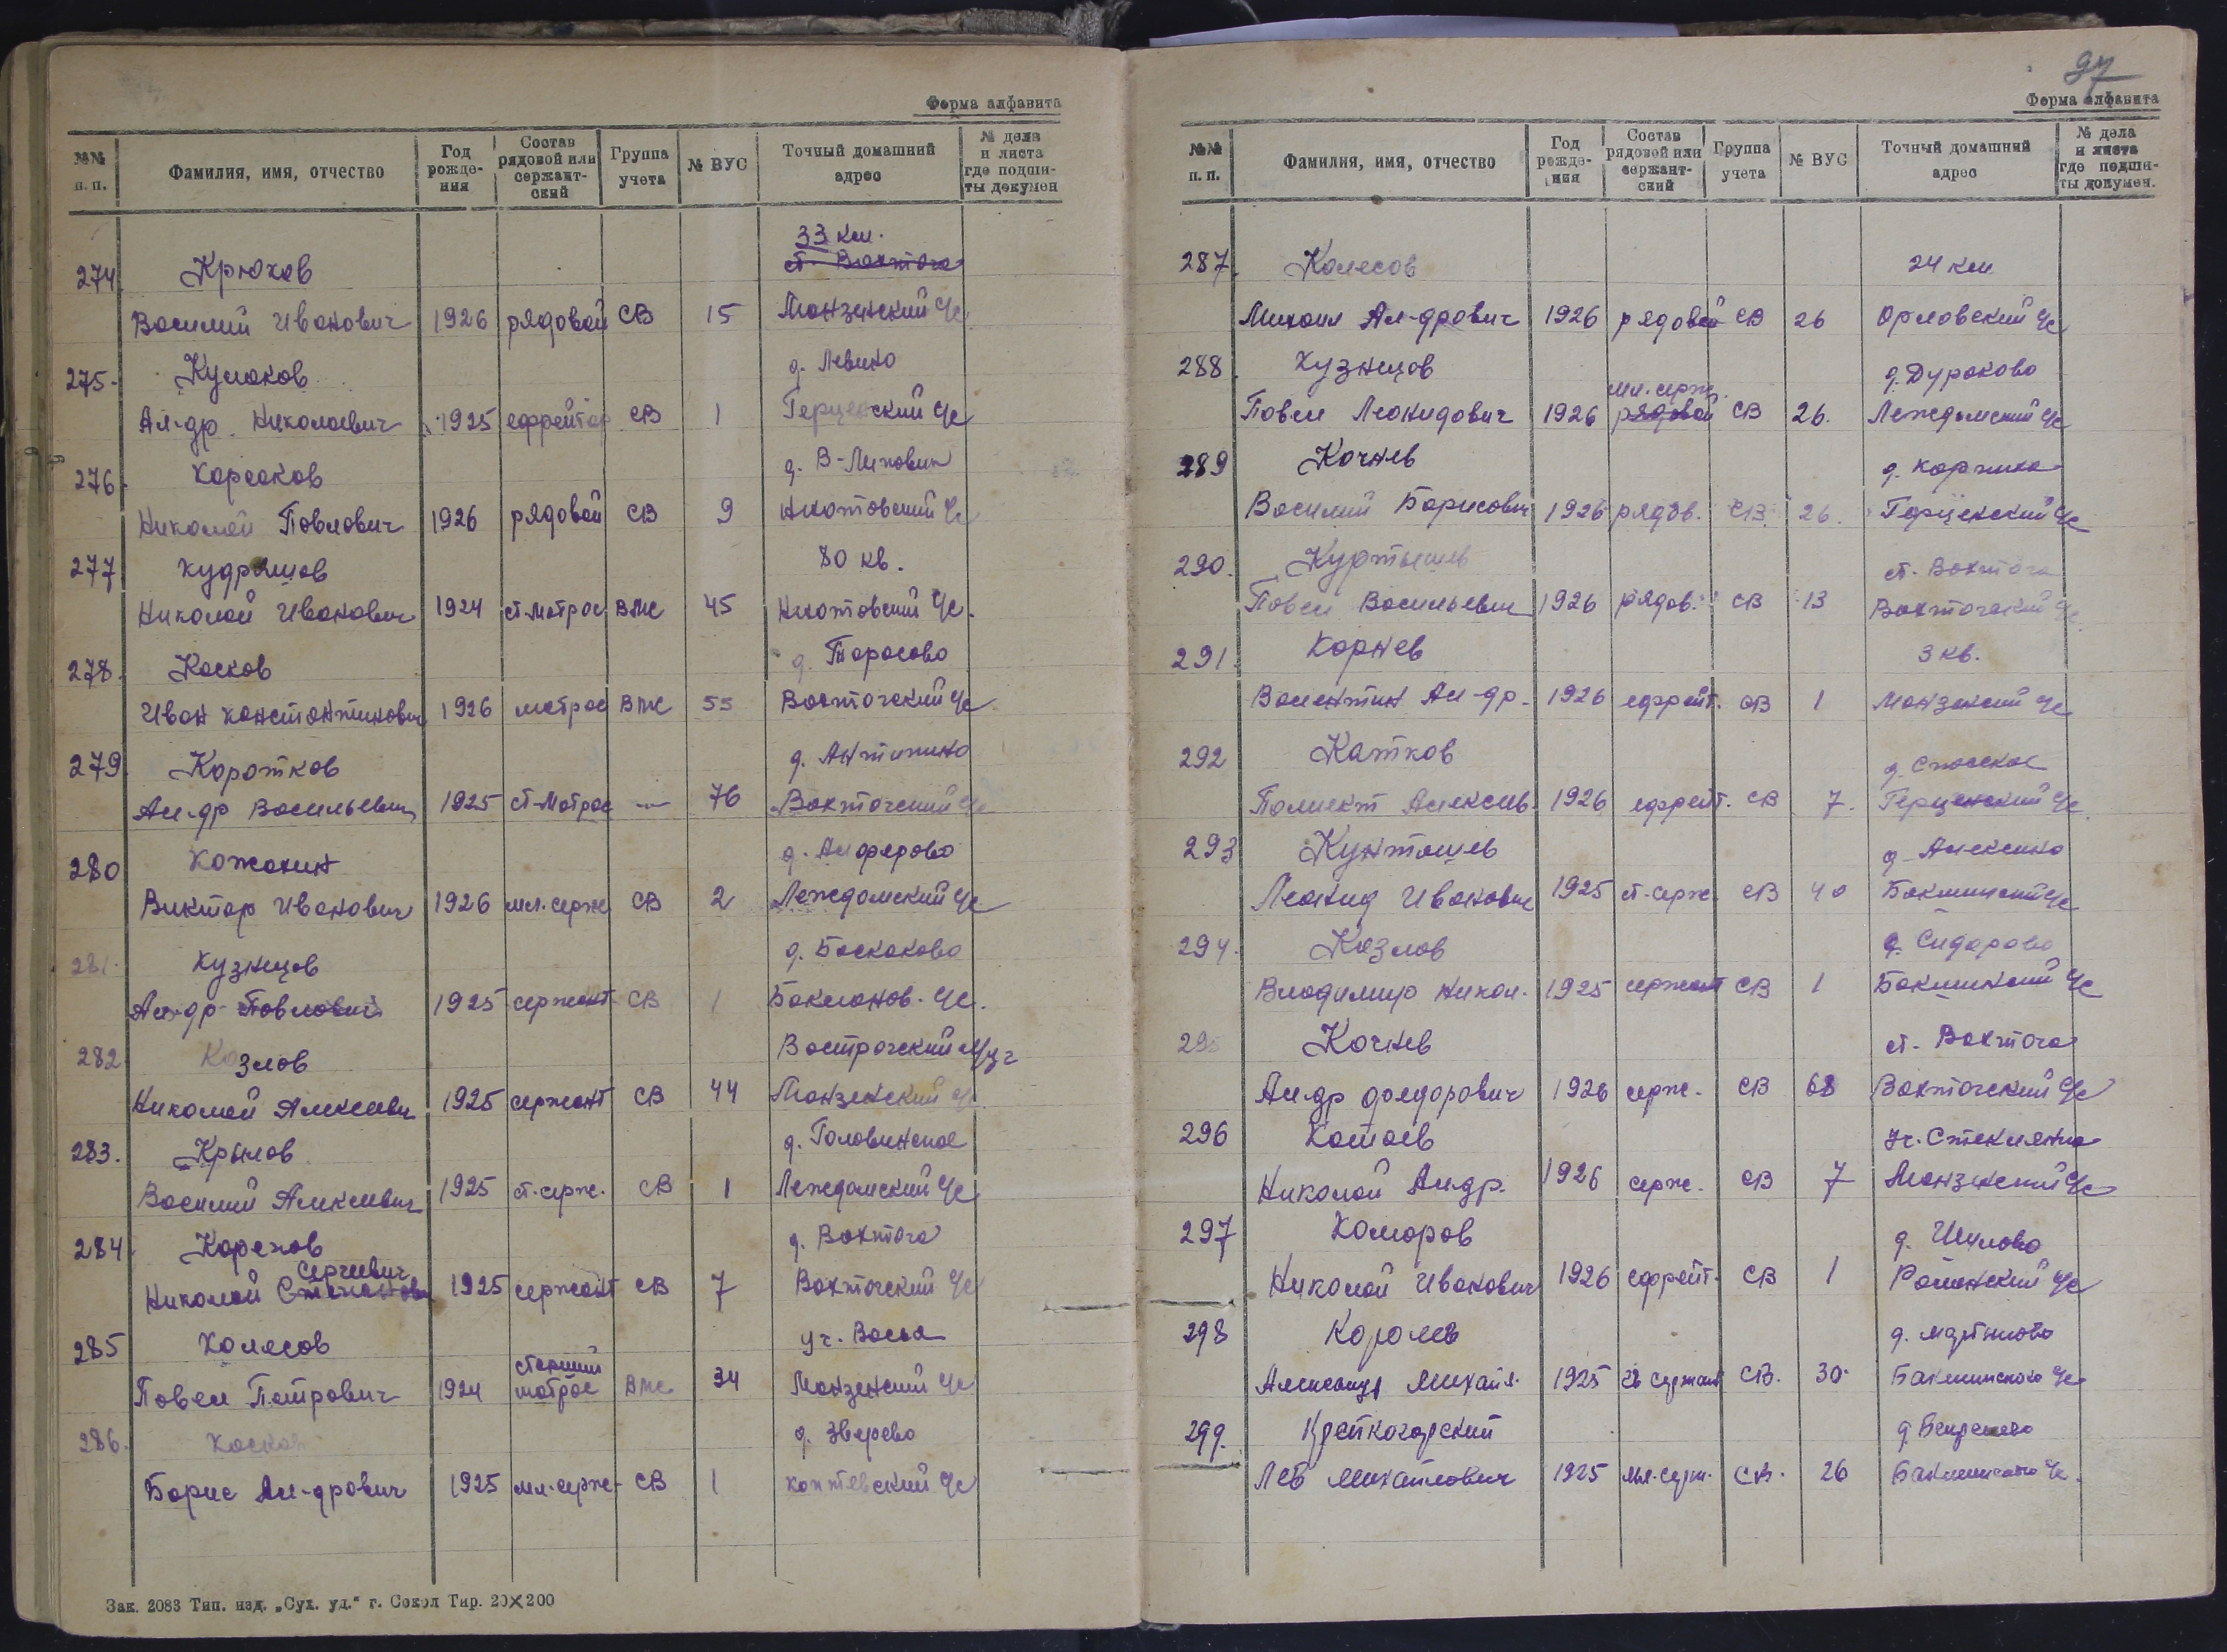 Форма алфавита
№№ п. п. Фамилия, имя, отчество Год рожде-ния Состав рядовой или сержант-ский Группа учета № ВУС Точный домашний адрес № дела и листа где подши-ты докумен
33 км.
274 Крюков ст. Вохтога
Василий Иванович 1926 рядовой СВ 15 Монзенский с/с
275. Кулаков д. Левино
Ал-др Николаевич 1925 ефрейтор СВ 1 Герценский с/с
276. Корсаков
Николай Павлович 1926 рядовой СВ 9
277 Кудряшов 80 кв.
Николай Иванович 1924 ст. матрос ВМС 45
278. Косков д. Тарасово
Иван Константинович 1926 матрос ВМС 55 Вохтогский с/с
279. Коротков д. Антипино
Ал-др Васильевич 1925 ст-матрос -"- 76 Вохтогский с/с
280 Кожанин д. Алферово
Виктор Иванович 1926 мл. серж СВ 2 Леждомский с/с
281. Кузнецов д. Баскаково
Ал-др Павлович 1925 сержант СВ 1 Бакланов. с/с.
282 Козлов
Николай Алексеевич 1925 сержант СВ 44 Монзенский с/с
283. Крылов д. Головинское
Василий Алексеевич 1925 ст. серж. СВ 1 Леждомский с/с
284. д. Вохтога
Сергеевич
Николай Степанович 1925 сержант СВ 7 Вохтогский с/с
285 Колесов уч. Восья
старший
Павел Петрович 1924 матрос ВМС 34 Монзенский с/с
286. Косков д. Зверево
Борис Ал-дрович 1925 мл. серж. СВ 1
Зак. 2083 Тип. изд. „Сух. уд.“ г. Сокол Тир. 20×200
97
Форма алфавита
№№ п. п. Фамилия, имя, отчество Год рожде-ния Состав рядовой или сержант-ский Группа учета № ВУС Точный домашний адрес № дела и листа где подши-ты докумен.
287. Колесов 24 км
Михаил Ал-дрович 1926 рядовой СВ 26 Орловский с/с
288. Кузнецов д. Дураково
мл. серж.
Павел Леонидович 1926 рядовой СВ 26. Леждомский с/с
289 Кочнев
Василий Борисович 1926 рядов. СВ 26. Герценский с/с
290. Куртышев ст. Вохтога
Павел Васильевич 1926 рядов. СВ 13 Вохтогский с/с.
291. Корнев 3 кв.
Валентин Ал-др. 1926 ефрейт. СВ 1 Монзенский с/с
292 Катков д. Спасское
Полиект Алексеев. 1926 ефрейт. СВ 7. Герценский с/с.
293 Кунташев д. Алексино
Леонид Иванович 1925 ст. серж. СВ 40
294. Козлов д. Сидорово
Владимир Никол. 1925 сержант СВ 1
295 Кочнев ст. Вохтога
Ал-др Федорович 1926 серж. СВ 68 Вохтогский с/с
296 уч. Стеклянка
Николай Ал-др. 1926 серж. СВ 7 Монзенский с/с
297 Комаров
Николай Иванович 1926 ефрейт. СВ 1
298 Королев д. Мартыново
Александр Михайл. 1925 СВ. 30
299.
Лев Михайлович 1925 мл. серж. СВ. 26